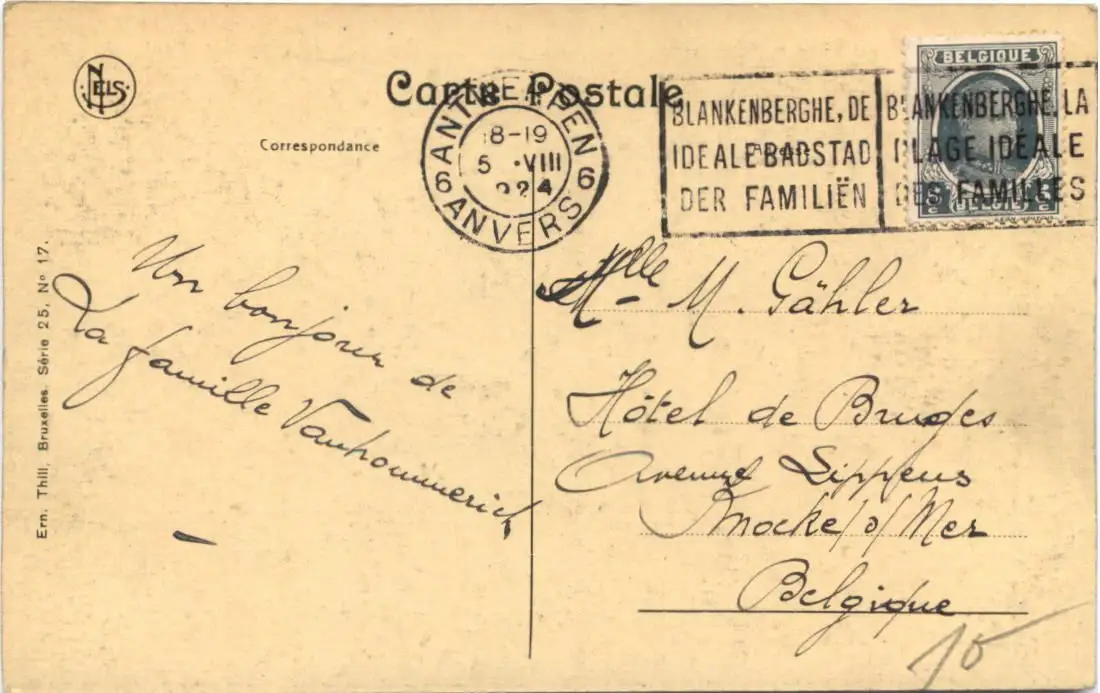 NELS
Carte Postale
Correspondance
ANTWERPEN
18-19
5 VIII
924
6 6
ANVERS
BLANKENBERGHE, DE
IDEALE BADSTAD
DER FAMILIËN
BLANKENBERGHE, LA
PLAGE IDÉALE
DES FAMILLES
BELGIQUE
Un bonjour de
La famille Vanhommerich
Mlle M. Gähler
Hôtel de Bruges
Avenue Lippens
Knocke s/ Mer
Belgique
10
Ern. Thill, Bruxelles. Série 25, No 17.